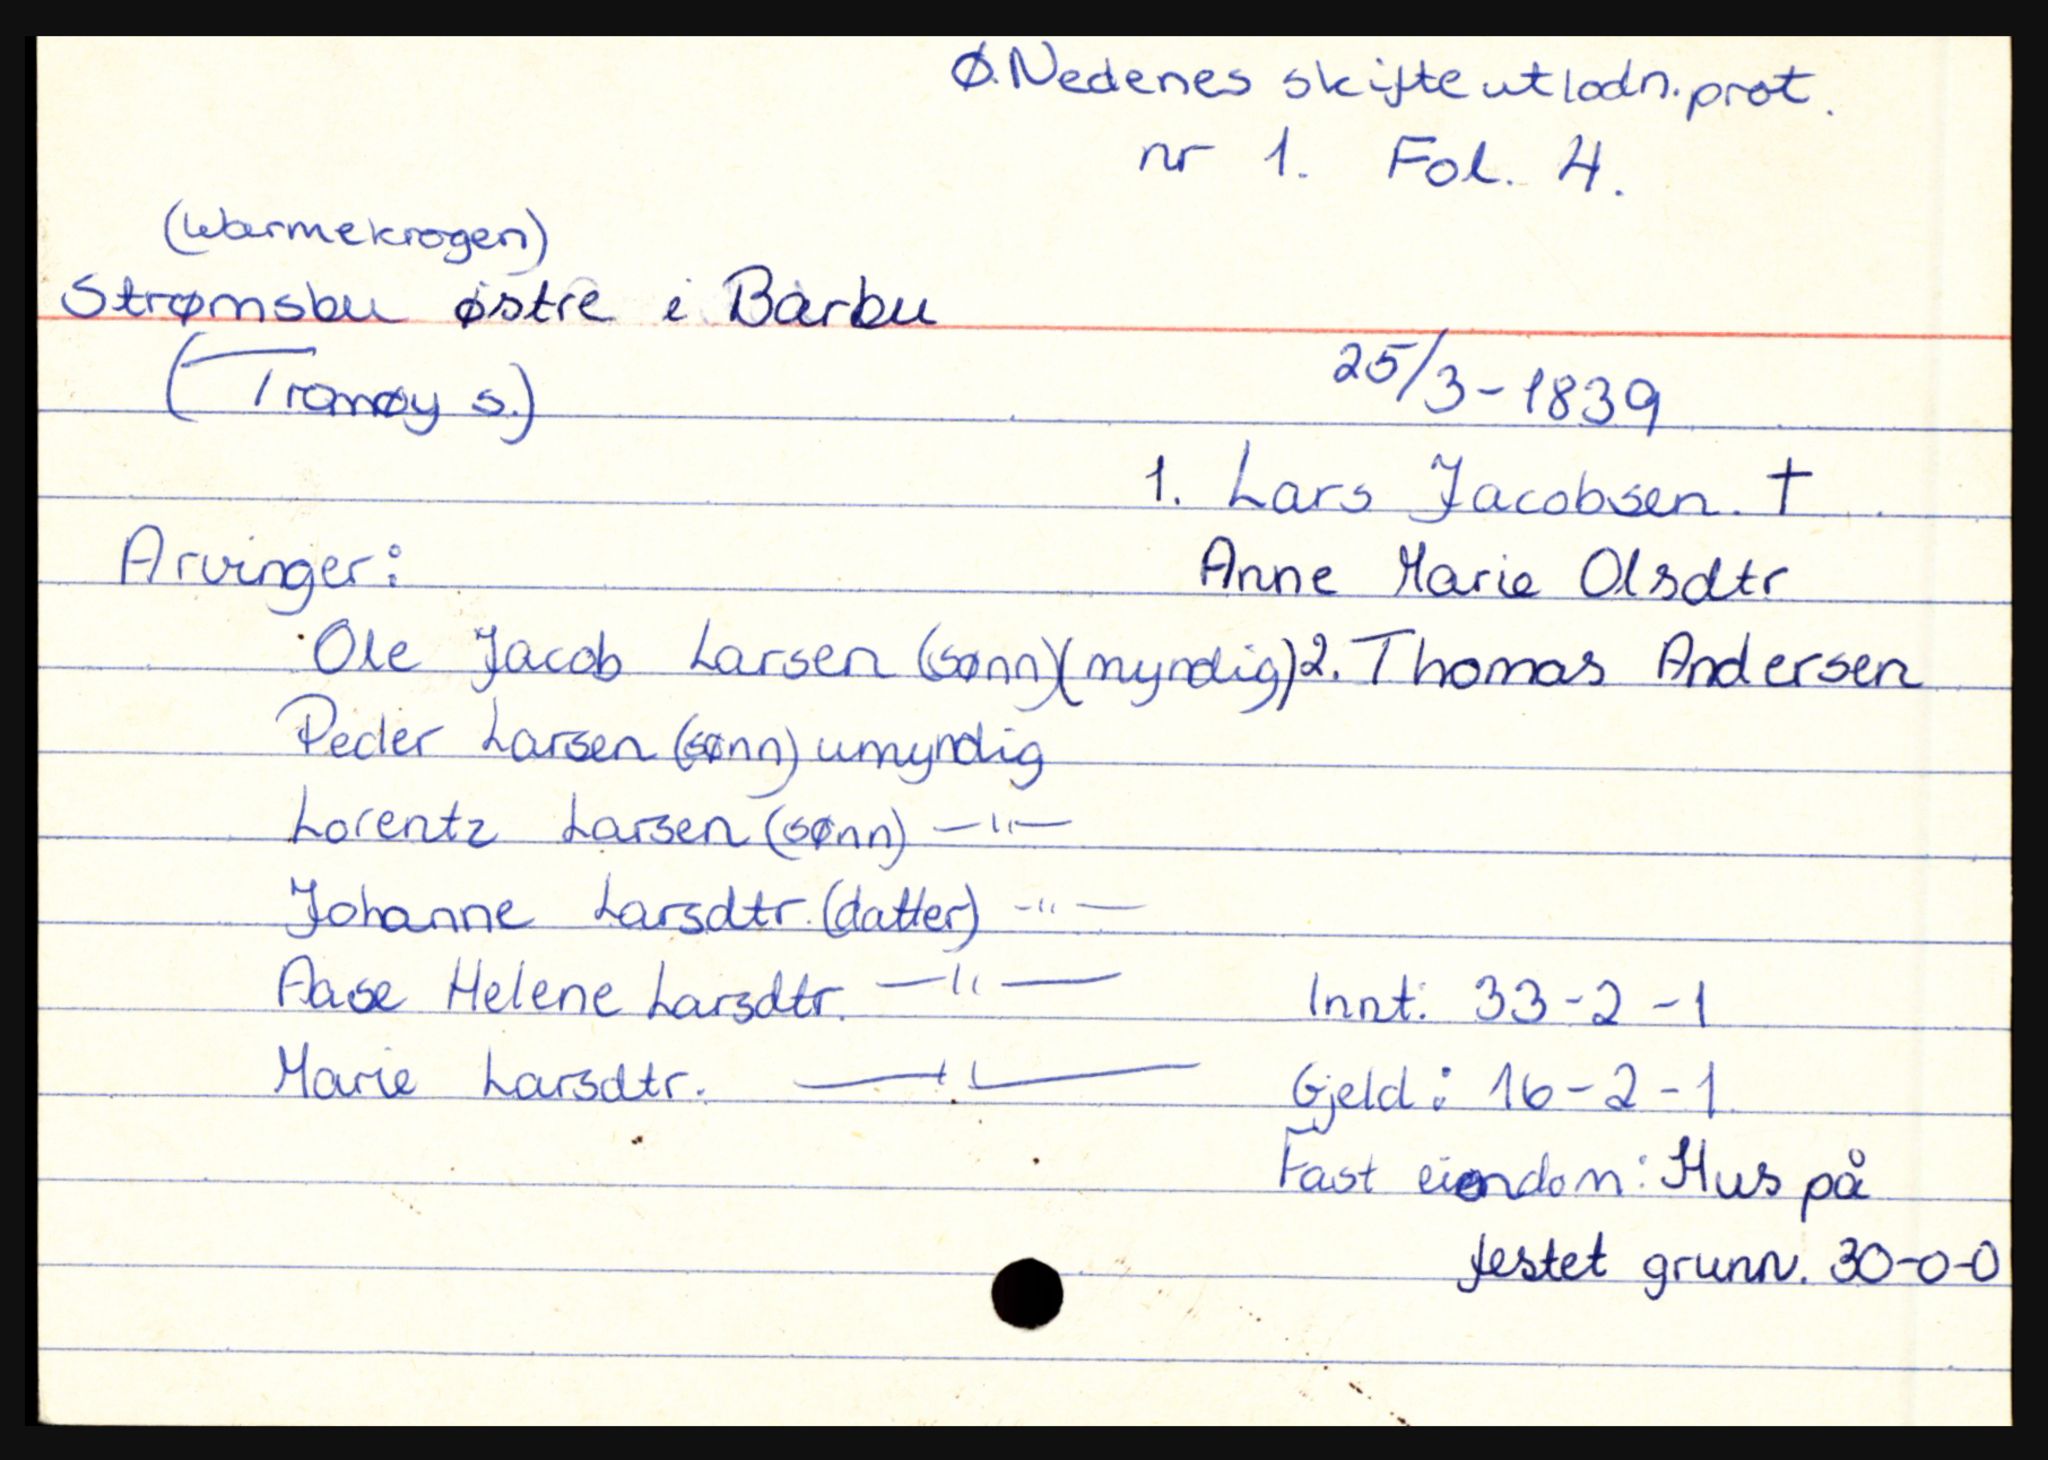 Ø. Nedenes skifteutlodn. prot.
nr 1. Fol. 4.
(Warmekrogen)
Strømsbu østre i Barbu
(Tromøy s.)
25/3-1839
1. Lars Jacobsen. †
Arvinger:
Anne Marie Olsdtr
Ole Jacob Larsen (sønn)(myndig) 2. Thomas Andersen
Peder Larsen (sønn) umyndig
Lorentz Larsen (sønn) —"—
Johanne Larsdtr. (datter) -"—
Aase Helene Larsdtr. —"—
Innt: 33-2-1
Marie Larsdtr. —"—
Gjeld: 16-2-1
Fast eiendom: Hus på
festet grunn. 30-0-0